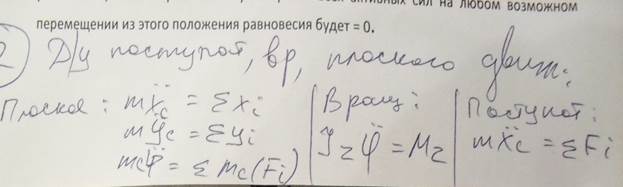 активных сил на любом возможном
перемещении из этого положения равновесия будет = 0.
2 Д/у поступат, вр, плоского движ:
Плоское: mẍc = Σxi
mÿc = Σyi
mcφ̈ = Σmc(Fi)
Вращ:
Jzφ̈ = Mz
Поступат:
mẍc = ΣFi